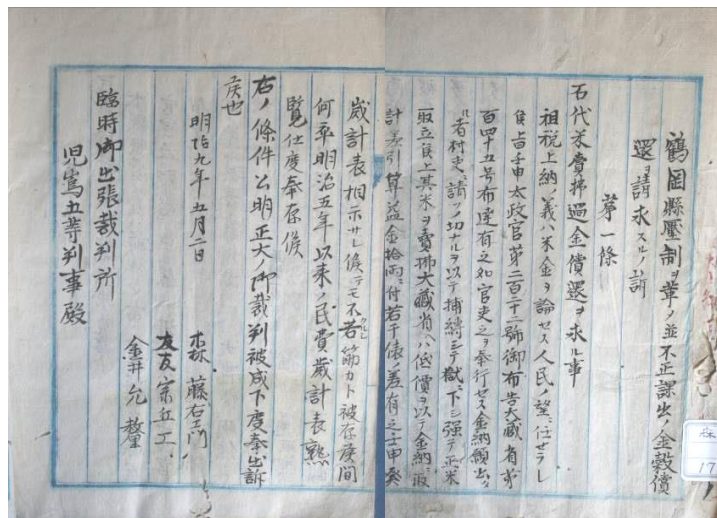 鶴岡縣壓制ヲ革ノ並不正課出ノ金穀償
還ヲ請求スルノ訴
第一條
石代米賣拂過金償還ヲ求ル事
祖税上納ノ義ハ米金ヲ論セス人民ノ望ニ任セラレ
候旨壬申太政官第二百二十二號御布告大蔵省第
百四十五号布達有之処官吏之ヲ奉行セス金納願出ツ
ル者村吏ニ請ソノ功ナルヲ以テ捕縛シテ獄ニ下シ強テ正米
取立候上其米ヲ賣拂大蔵省ヘハ低價ヲ以テ金納ニ取
計差引算益金拾両ニ付若干俵ノ差有之壬申癸
歳計表相示サレ候テモ不苦筋カト被存候間
何卒明治五年以来ノ民費歳計表熟
覧仕度奉存候
右ノ條件公明正大ノ御裁判被成下度奉出訴
候也
明治九年五月二日
森藤右エ門
友友宗兵エ
金井允釐
臨時御出張裁判所
児嶌五等判事殿
森
17